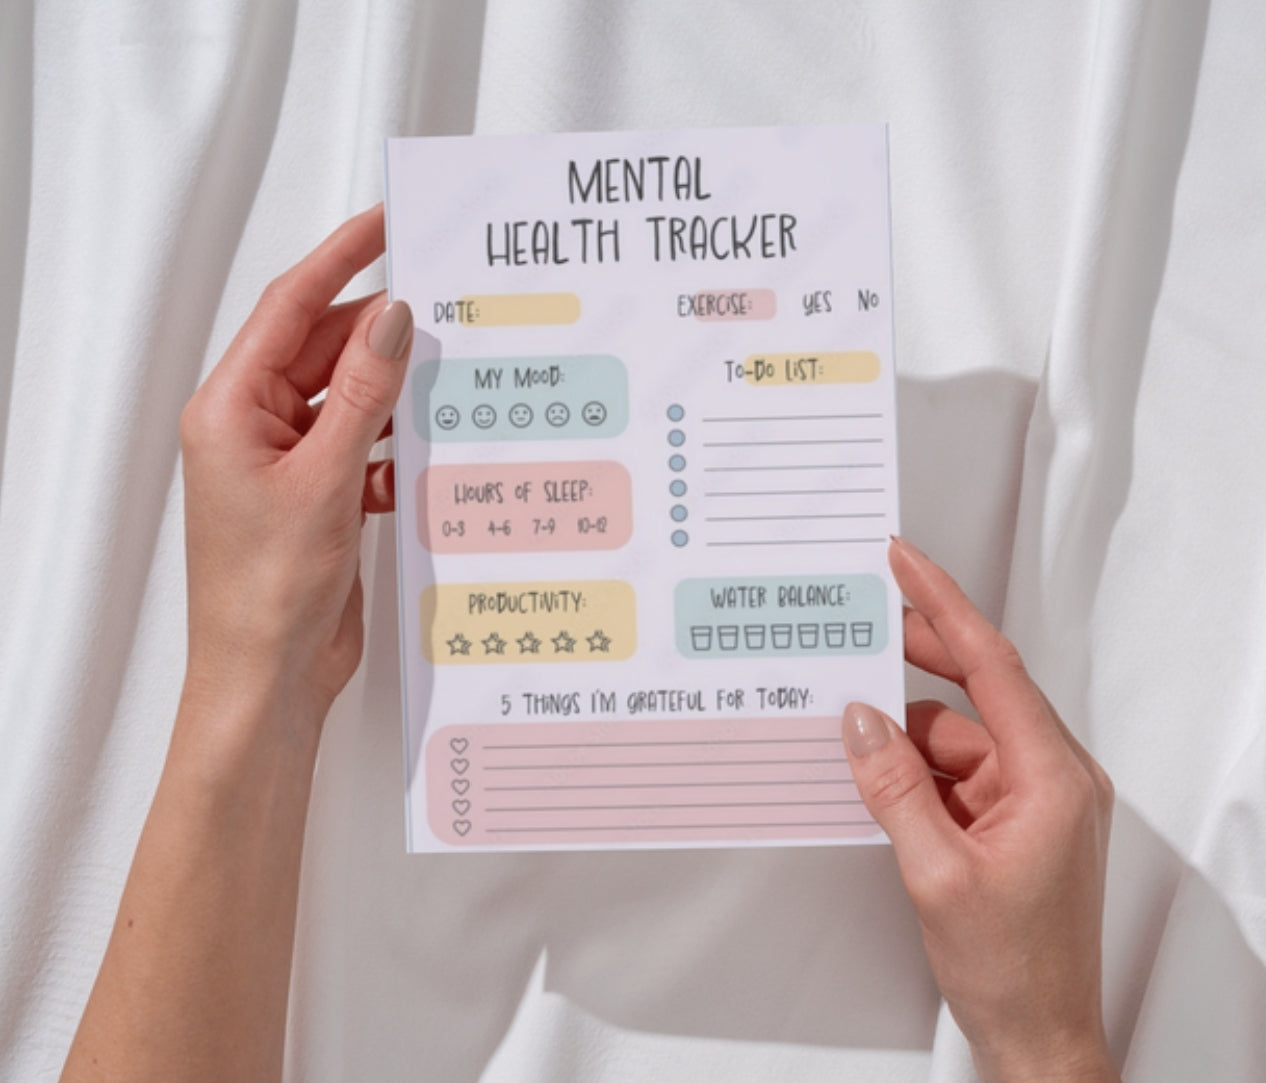 MENTAL
HEALTH TRACKER
DATE:
EXERCISE: YES NO
MY MOOD:
TO-DO LIST:
HOURS OF SLEEP:
0-3 4-6 7-9 10-12
PRODUCTIVITY:
WATER BALANCE:
5 THINGS I'M GRATEFUL FOR TODAY: